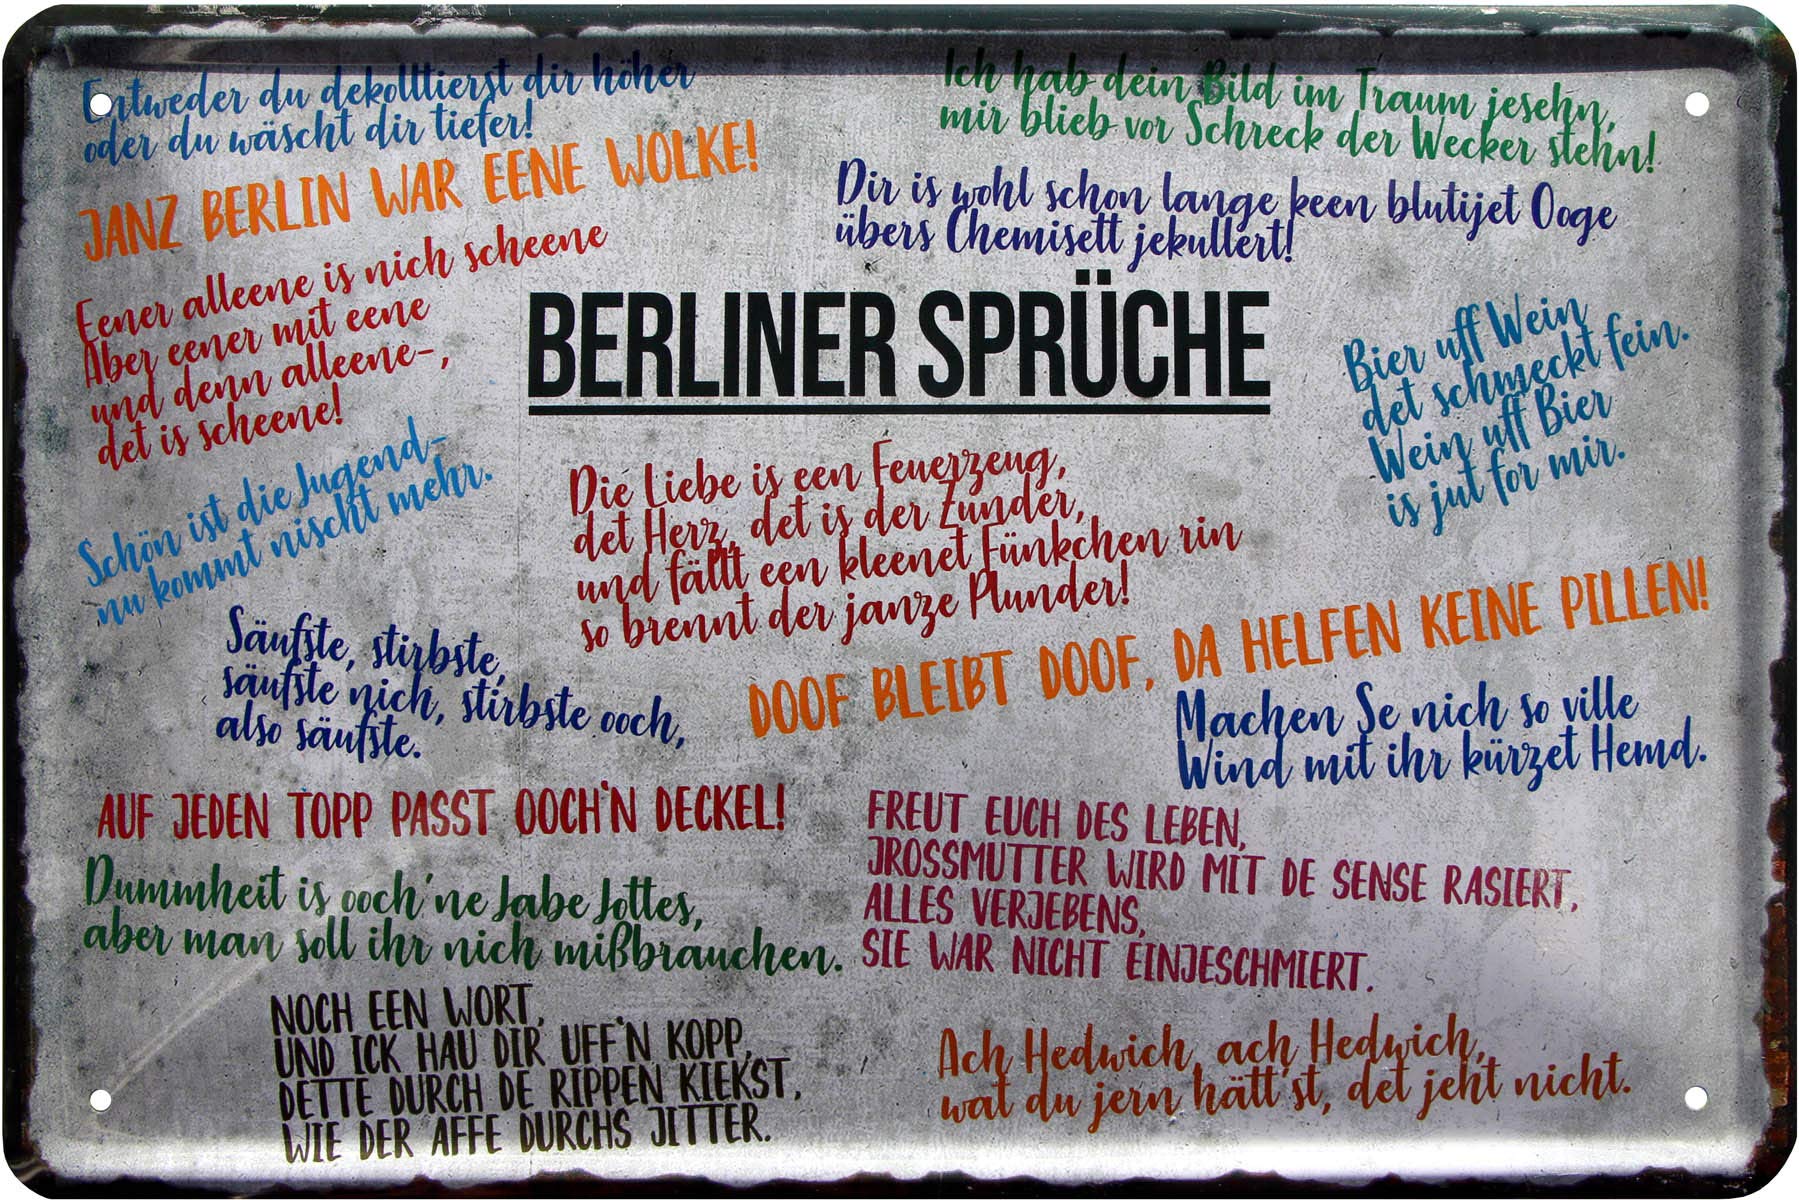 Entweder du dekolltierst dir höher
oder du wäscht dir tiefer!
Ich hab dein Bild im Traum jesehn,
mir blieb vor Schreck der Wecker stehn!
JANZ BERLIN WAR EENE WOLKE!
Dir is wohl schon lange keen blutijet Ooge
übers Chemisett jekullert!
Eener alleene is nich scheene
Aber eener mit eene
und denn alleene-,
det is scheene!
BERLINER SPRÜCHE
Bier uff Wein
det schmeckt fein.
Wein uff Bier
is jut for mir.
Schön ist die Jugend-
nu kommt nischt mehr.
Die Liebe is een Feuerzeug,
det Herz, det is der Zunder,
und fällt een kleenet Fünkchen rin
so brennt der janze Plunder!
Säufste, stirbste,
säufste nich, stirbste ooch,
also säufste.
DOOF BLEIBT DOOF, DA HELFEN KEINE PILLEN!
Machen Se nich so ville
Wind mit ihr kürzet Hemd.
AUF JEDEN TOPP PASST OOCH'N DECKEL!
FREUT EUCH DES LEBEN,
JROSSMUTTER WIRD MIT DE SENSE RASIERT,
ALLES VERJEBENS,
SIE WAR NICHT EINJESCHMIERT.
Dummheit is ooch'ne Jabe Jottes,
aber man soll ihr nich mißbrauchen.
NOCH EEN WORT,
UND ICK HAU DIR UFF'N KOPP,
DETTE DURCH DE RIPPEN KIEKST,
WIE DER AFFE DURCHS JITTER.
Ach Hedwich, ach Hedwich,
wat du jern hätt'st, det jeht nicht.